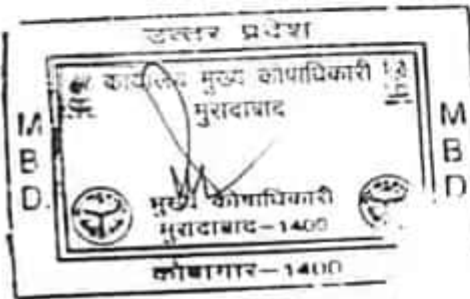 उत्तर प्रदेश
कार्यालय मुख्य कोषाधिकारी
मुरादाबाद
MBD
MBD
मुख्य कोषाधिकारी
मुरादाबाद-1400
कोषागार-1400